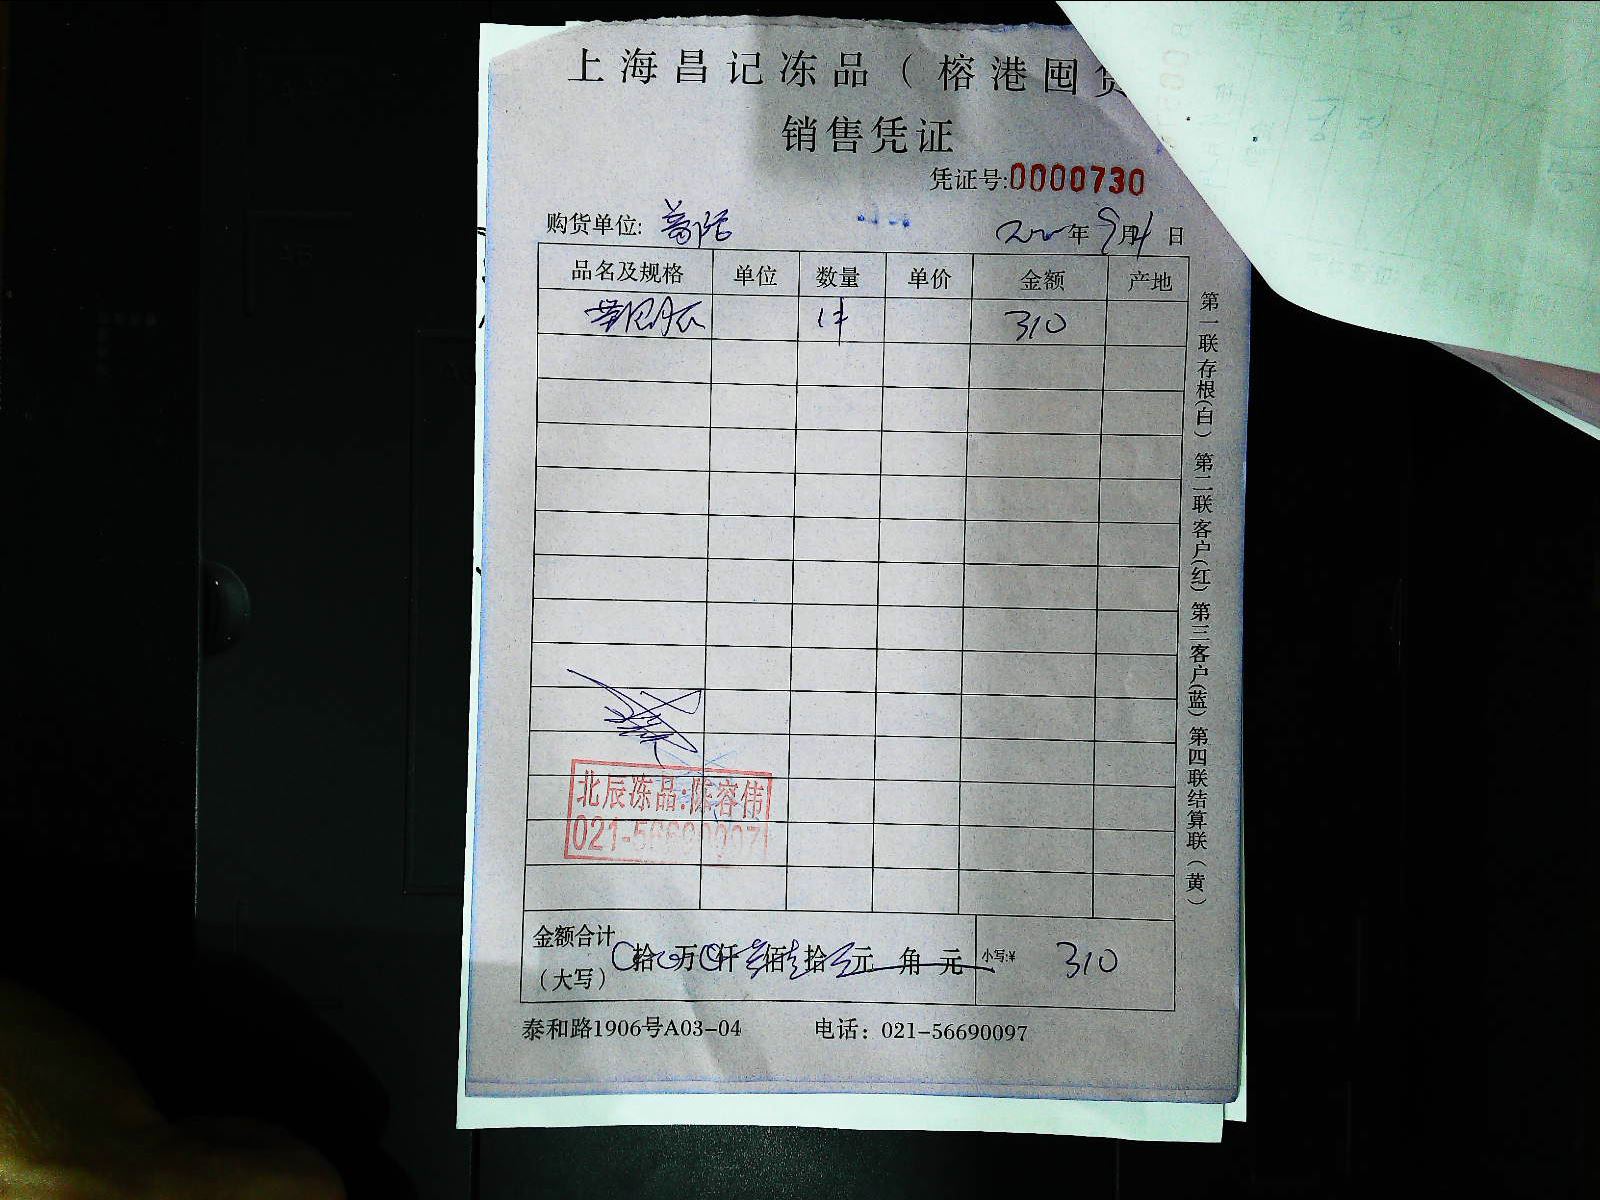 上海昌记冻品（榕港囤货
销售凭证
凭证号:0000730
购货单位:
年9月4日
品名及规格 单位 数量 单价 金额 产地
1件 310
北辰冻品:陈容伟
021-56690097
金额合计（大写） 拾 万 仟 叁佰壹拾 元 角 元 小写:¥ 310
泰和路1906号A03-04 电话：021-56690097
第一联存根(白) 第二联客户(红) 第三客户(蓝) 第四联结算联(黄)